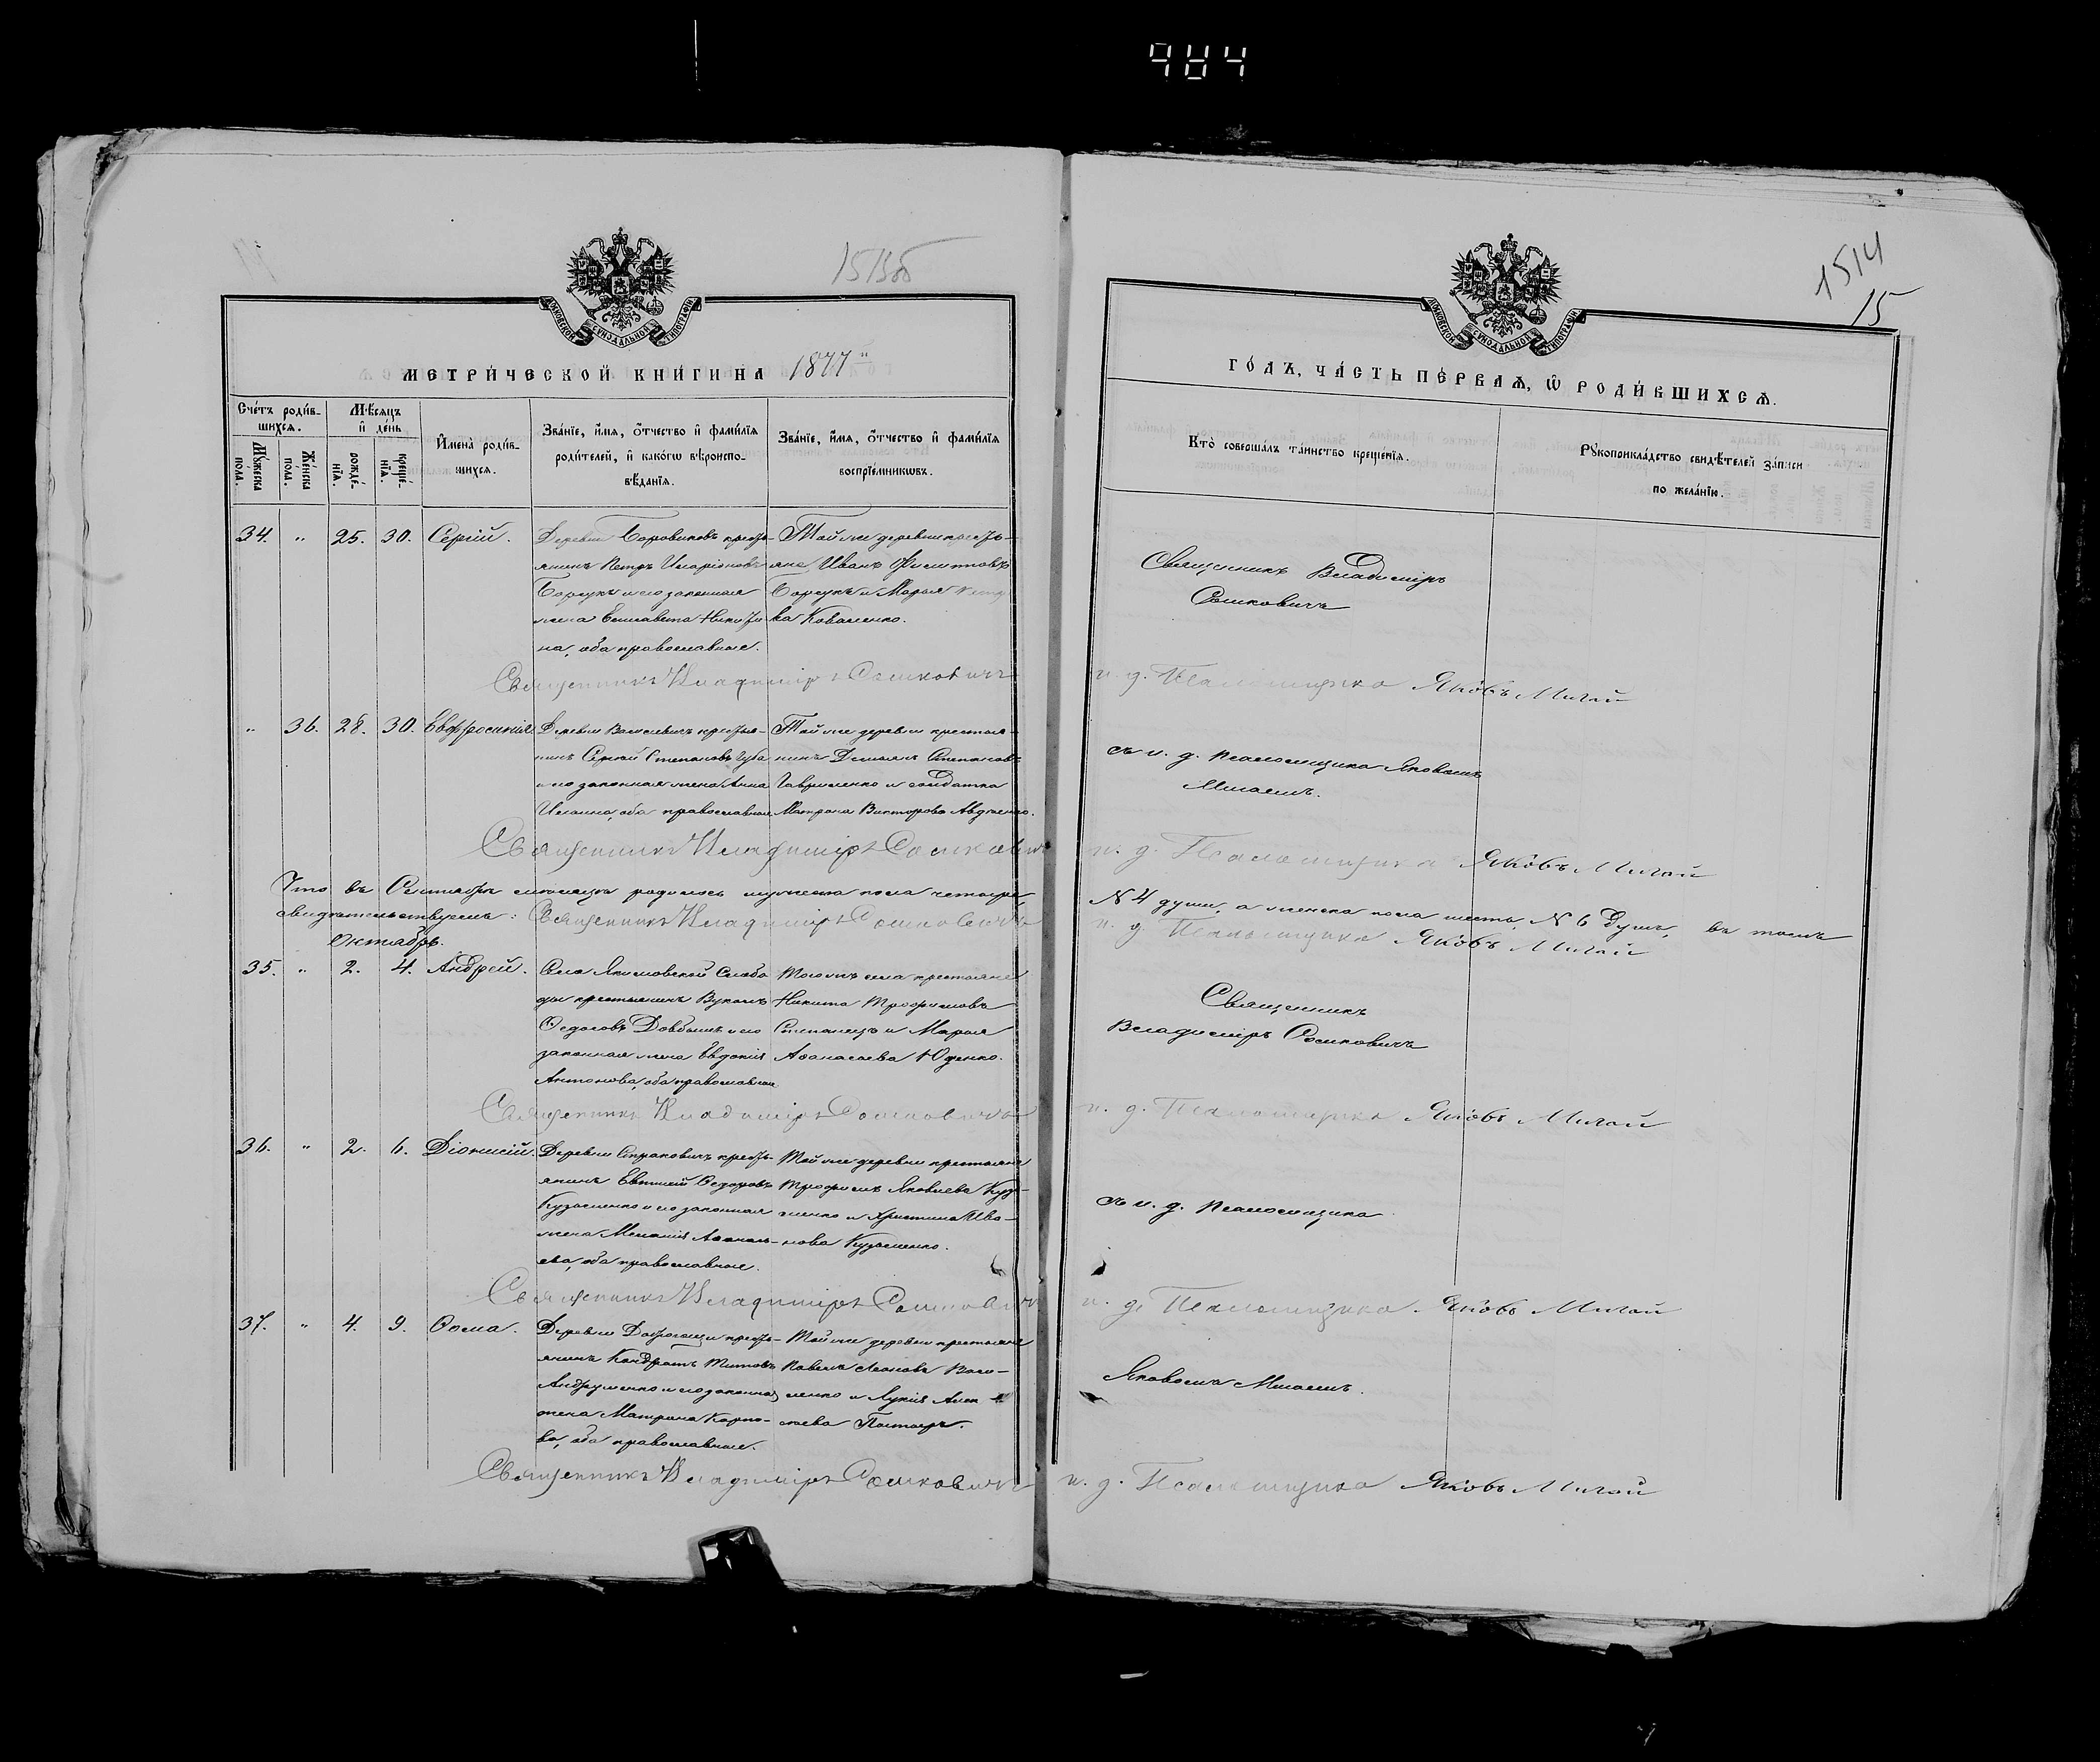 984
1513об
1514
15
МОСКОВСКОЙ СѴНОДАЛЬНОЙ ТИПОГРАФІИ
МОСКОВСКОЙ СѴНОДАЛЬНОЙ ТИПОГРАФІИ
МЕТРИ́ЧЕСКОЙ КНИ́ГИ НА 1877й
ГО́ДЪ, ЧА́СТЬ ПЕ́РВАѦ, Ѽ РОДИ́ВШИХСѦ.
Сче́тъ роди́вшихсѧ.
Мꙋ́жеска пола.
Же́нска пола.
Мѣ́сяцъ и҆ де́нь
рожде́нїѧ.
креще́нїѧ.
И҆мена̀ роди́вшихсѧ.
Зва́нїе, и҆́мѧ, ѻ҆́тчество и҆ фами́лїѧ
роди́телей, и҆ како́гѡ вѣроиспо-
вѣ́данїѧ.
Зва́нїе, и҆́мѧ, ѻ҆́тчество и҆ фами́лїѧ
воспрїе́мникѡвъ.
Кто̀ соверша́лъ та́инство креще́нїѧ.
Рꙋкоприкла́дство свидѣ́телей за́писи
по жела́нїю.
34. " 25. 30. Сергій.
Деревни Боровиковъ кресть-
янинъ Петръ Иларіоновъ
Борсукъ и его законная
жена Елисавета Никити-
на, оба православные.
Той же деревни кресть-
яне Иванъ Филиповъ
Борсукъ и Марья Петро
ва Коваленко.
Священникъ Владиміръ
Сошковичъ
Священникъ Владиміръ Сошковичъ
и. д. Псаломщика Яковъ Милай
" 36. 28. 30. Евфросинія
Деревни Василевичъ крестья-
нинъ Сергѣй Степановъ
и его законная жена Анна
оба православные
Той же деревни крестья-
нинъ Демьянъ Степановъ
Гавриленко и солдатка
Матрона Викторова Авдѣенко.
съ и. д. псаломщика Яковомъ
Милаемъ.
Священникъ Владиміръ Сошковичъ
и. д. Псаломщика Яковъ Милай
Что въ Сентябрѣ мѣсяцѣ родилось мужеска пола четыре,
№ 4 души, а женска пола шесть, № 6 душъ, въ томъ
свидѣтельствуемъ: Священникъ Владиміръ Сошковичъ
и. д. Псаломщика Яковъ Милай
Октябрь.
35. " 2. 4. Андрей.
Села Якимовской Слобо
ды крестьянинъ Вуколъ
Ѳедоровъ Довбышъ и его
законная жена Евдокія
Антонова, оба православные
Того жъ села крестьяне
Никита Трофимовъ
Степанецъ и Марья
Аѳанасьева Юденко.
Священникъ
Владиміръ Сошковичъ
Священникъ Владиміръ Сошковичъ
и. д. Псаломщика Яковъ Милай
36. " 2. 6. Діонисій.
Деревни Страковичъ кресть-
янинъ Евтихій Ѳедоровъ
Кузьменко и его законная
жена Меланія Аѳанась-
ева, оба православные.
Той же деревни крестьяне
Трофимъ Яковлевъ Кузь-
менко и Христина Ива-
нова Кузьменко.
съ и. д. псаломщика
Священникъ Владиміръ Сошковичъ
и. д. Псаломщика Яковъ Милай
37. " 4. 9. Ѳома.
Деревни кресть-
янинъ Кондратъ Титовъ
Андрусенко и его законная
жена Матрона Карпо-
ва, оба православные.
Той же деревни крестьяне
Павелъ Леоновъ Васи-
ленко и Лукія Алек-
сѣева
Яковомъ Милаемъ.
Священникъ Владиміръ Сошковичъ
и. д. Псаломщика Яковъ Милай